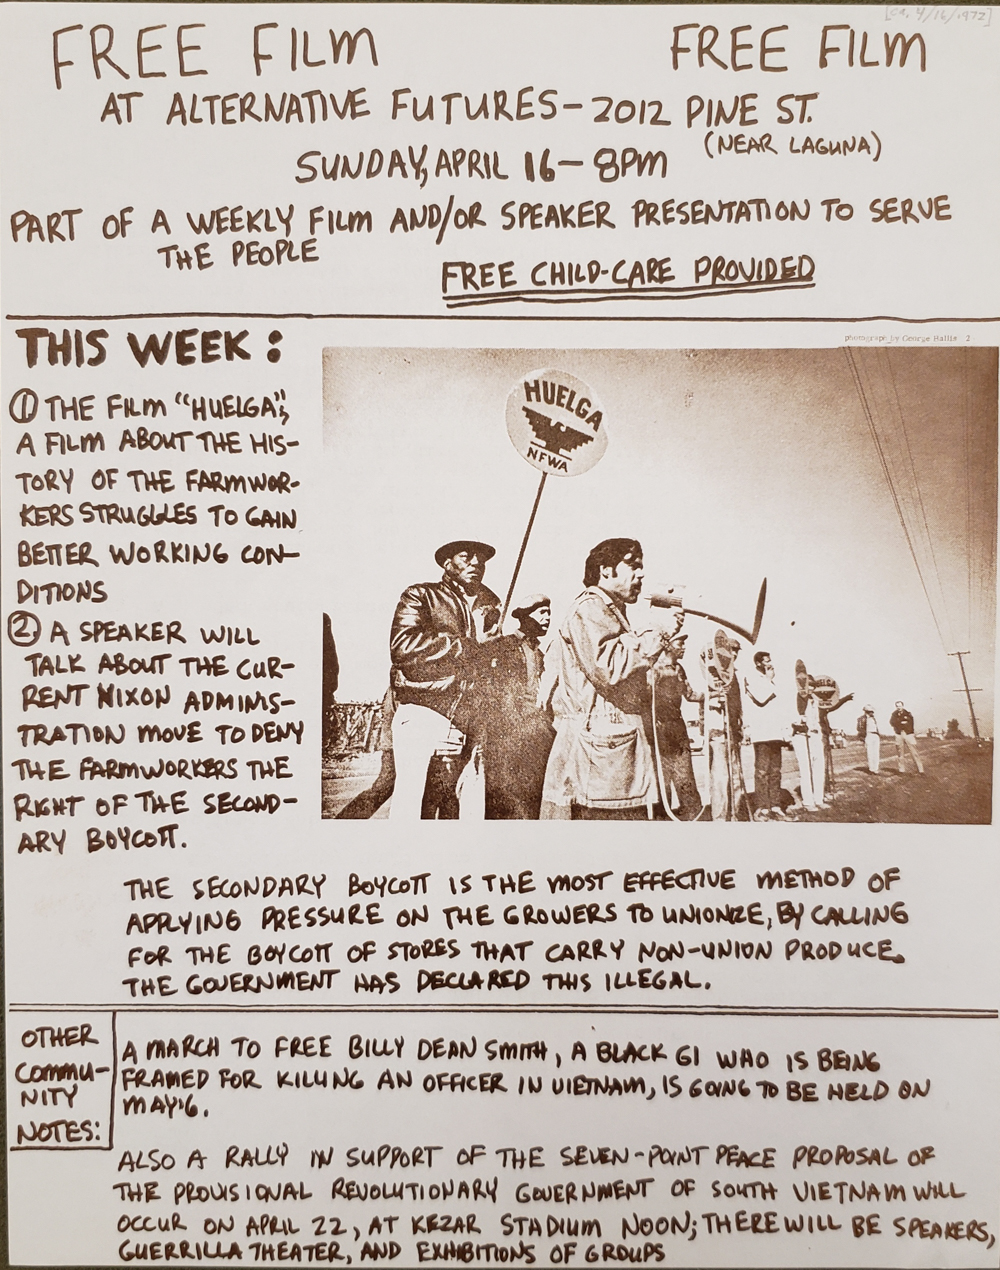 [ca. 4/16/1972]
FREE FILM FREE FILM
AT ALTERNATIVE FUTURES—2012 PINE ST.
(NEAR LAGUNA)
SUNDAY, APRIL 16—8PM
PART OF A WEEKLY FILM AND/OR SPEAKER PRESENTATION TO SERVE
THE PEOPLE
FREE CHILD-CARE PROVIDED
THIS WEEK:
photograph by George Ballis 2
① THE FILM "HUELGA",
A FILM ABOUT THE HIS-
TORY OF THE FARMWOR-
KERS STRUGGLES TO GAIN
BETTER WORKING CON-
DITIONS
② A SPEAKER WILL
TALK ABOUT THE CUR-
RENT NIXON ADMINIS-
TRATION MOVE TO DENY
THE FARMWORKERS THE
RIGHT OF THE SECOND-
ARY BOYCOTT.
HUELGA
NFWA
THE SECONDARY BOYCOTT IS THE MOST EFFECTIVE METHOD OF
APPLYING PRESSURE ON THE GROWERS TO UNIONIZE, BY CALLING
FOR THE BOYCOTT OF STORES THAT CARRY NON-UNION PRODUCE.
THE GOVERNMENT HAS DECLARED THIS ILLEGAL.
OTHER
COMMU-
NITY
NOTES:
A MARCH TO FREE BILLY DEAN SMITH, A BLACK GI WHO IS BEING
FRAMED FOR KILLING AN OFFICER IN VIETNAM, IS GOING TO BE HELD ON
MAY 6.
ALSO A RALLY IN SUPPORT OF THE SEVEN-POINT PEACE PROPOSAL OF
THE PROVISIONAL REVOLUTIONARY GOVERNMENT OF SOUTH VIETNAM WILL
OCCUR ON APRIL 22, AT KEZAR STADIUM NOON; THERE WILL BE SPEAKERS,
GUERRILLA THEATER, AND EXHIBITIONS OF GROUPS